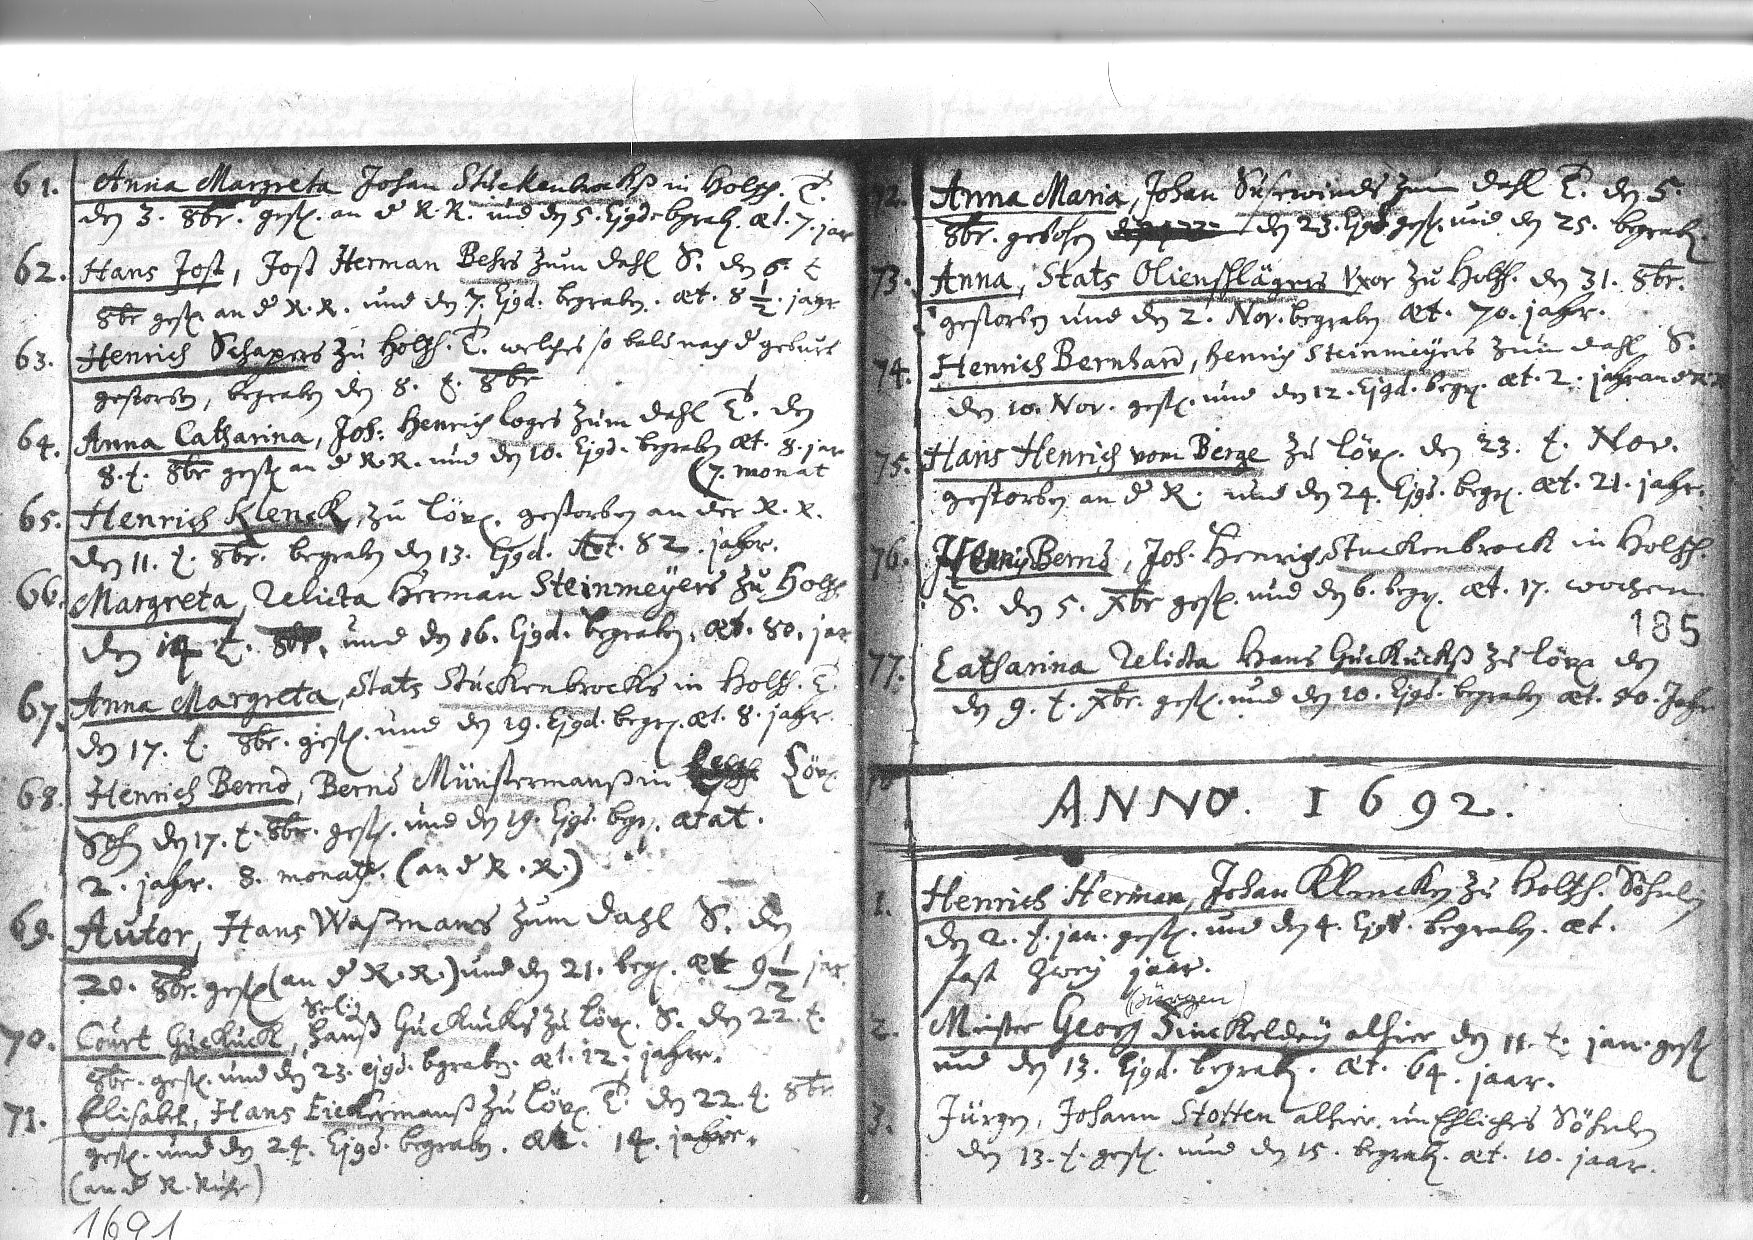 61. Anna Margreta Johan Stuckenbrockß in Holtzh. T.
den 3. 8br. gest. an d R.R. und den 5. Ejgd. begrab. æt. 7. jar
62. Hans Jost, Jost Herman Behrs zum Dahl S. den 6. t
8br gest. an d R.R. und den 7. Ejgd. begraben. æt. 8 1/2. jahr
63. Henrich Schapers zu Holtzh. T. welches so bald nach d geburt
gestorben, begraben den 8. t. 8br
64. Anna Catharina, Joh: Henrich Loges zum Dahl T. den
8. t. 8br gest an d R.R. und den 10. Ejgd. begraben æt. 8. jar
(7. monat
65. Henrich Klenck, zu Löv. gestorben an der R. R.
den 11. t. 8br. begraben den 13. Ejgd. Æt. 82. jahr.
66. Margreta, Relicta Herman Steinmeyers zu Holtzh
den 14 t. 8br. und den 16. Ejgd. begraben. æt. 80. jar
67. Anna Margreta, Stats Stuckenbrocks in Holtzh. T.
den 17. t. 8br. gest. und den 19. Ejgd. begr. æt. 8. jahr.
68. Henrich Bernd, Bernd Münstermanß in Löv.
Sohn den 17. t. 8br. gest. und den 19. Ejgd. begr. ætat.
2. jahr. 8. monath. (an d R.R.)
69. Autor, Hans Waßmans zum Dahl S. den
20. 8br. gest (an d R.R.) und den 21. begr. æt 9 1/2 jar
Selig
70. Court Guckuck, Hanß Guckucks zu Löv. S. den 22. t.
8br. gest. und den 23. ejgd. bgraben. æt. 12. jahre.
71. Elisabet, Hans Eickermanß zu Löv. T. den 22. t. 8br
gest. und den 24. Ejgd. begraben. æt. 14. jahre.
(an d R. Ruhr)
1691
72. Anna Maria, Johan Susewinds zum Dahl T. den 5.
8br. gebohren den 23. Ejgd gest. und den 25. begrab.
73. Anna, Stats Olienschlägers Vxor zu Holtzh. den 31. 8br.
gestorben und den 2. Nov. begraben æt. 70. jahr.
74. Henrich Bernhard, Henrich Steinmeyers zum Dahl S.
den 10. Nov. gest. und den 12. Ejgd. begr. æt. 2. jahr an d R.R
75. Hans Henrich vom Berge zu Löv. den 23. t. Nov.
gestorben an d R. und den 24. Ejgd. begr. æt. 21. jahr.
76. Henrich Bernd, Joh. Henrich Stuckenbrock in Holtzh.
S. den 5. Xbr gest. und den 6. begr. æt. 17. wochen
185
77. Catharina Relicta Hans Guckuckß zu Löv. den
den 9. t. Xbr. gest. und den 10. Ejgd. begraben æt. 90. Jahr
ANNO. 1692.
1. Henrich Herman, Johan Klencken zu Holtzh. Söhnlein
den 2. t. jan. gest. und den 4. Ejgd. begraben. æt.
fast zwey jaar.
(Jürgen)
2. Meister Georg Finckeldey alhier den 11. t. jan. gest
und den 13. Ejgd. begrab. æt. 64. jaar.
3. Jürgen, Johann Stotten alhier unEhliches Söhnlein
den 13. t. gest. und den 15. begrab. æt. 10. jaar.